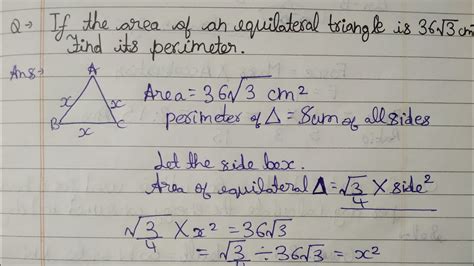 Q→ If the area of an equilateral triangle is 36√3 cm²
Find its perimeter.
Ans→
A
x x
B x C
Area = 36√3 cm²
perimeter of Δ = Sum of all sides
Let the side box.
Area of equilateral Δ = √3/4 × side²
√3/4 × x² = 36√3
= √3/4 ÷ 36√3 = x²